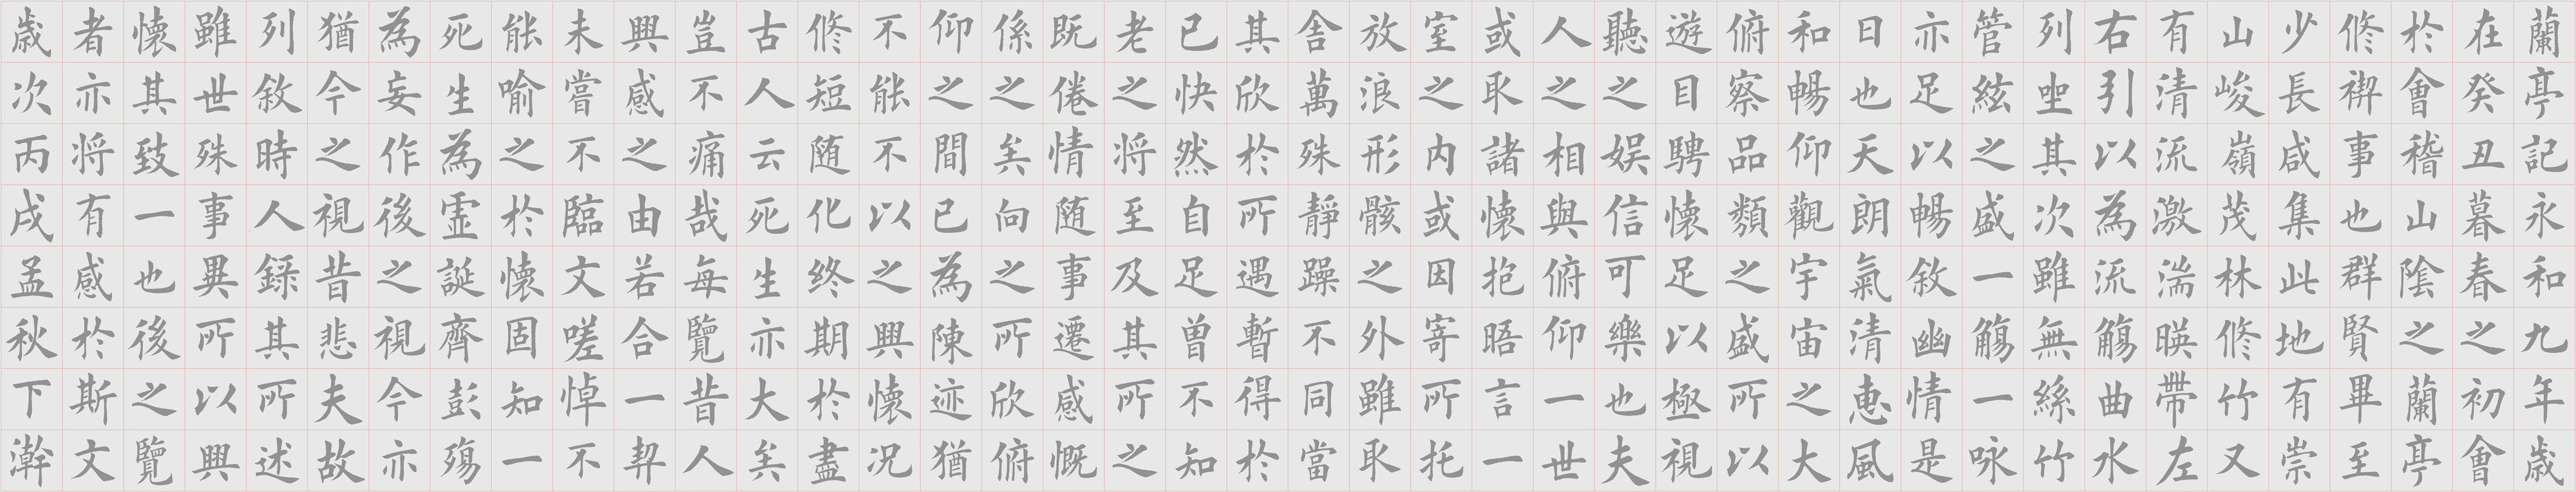 蘭亭記永和九年歲
在癸丑暮春之初會
於會稽山陰之蘭亭
修禊事也群賢畢至
少長咸集此地有崇
山峻嶺茂林修竹又
有清流激湍暎帶左
右引以為流觴曲水
列坐其次雖無絲竹
管絃之盛一觴一咏
亦足以暢敘幽情是
日也天朗氣清恵風
和暢仰觀宇宙之大
俯察品類之盛所以
遊目騁懷足以極視
聽之娛信可樂也夫
人之相與俯仰一世
或取諸懷抱晤言一
室之内或因寄所托
放浪形骸之外雖取
舍萬殊靜躁不同當
其欣於所遇暫得於
已快然自足曽不知
老之将至及其所之
既倦情随事遷感慨
係之矣向之所欣俯
仰之間已為陳迹猶
不能不以之興懷况
修短随化终期於盡
古人云死生亦大矣
豈不痛哉每覽昔人
興感之由若合一契
未嘗不臨文嗟悼不
能喻之於懷固知一
死生為霊誕齊彭殤
為妄作後之視今亦
猶今之視昔悲夫故
列敘時人録其所述
雖世殊事異所以興
懷其致一也後之覽
者亦将有感於斯文
歲次丙戌孟秋下澣